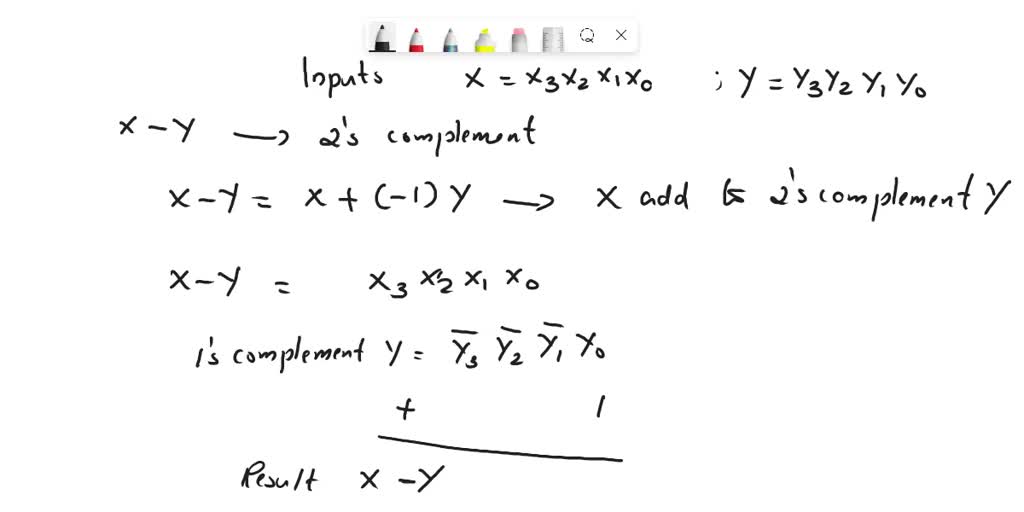 Inputs X = X3X2X1X0 ; Y = Y3Y2Y1Y0
X - Y → 2's complement
X - Y = X + (-1) Y → X add to 2's complement Y
X - Y = X3 X2 X1 X0
1's complement Y = Y̅3 Y̅2 Y̅1 Y0
+ 1
Result X - Y